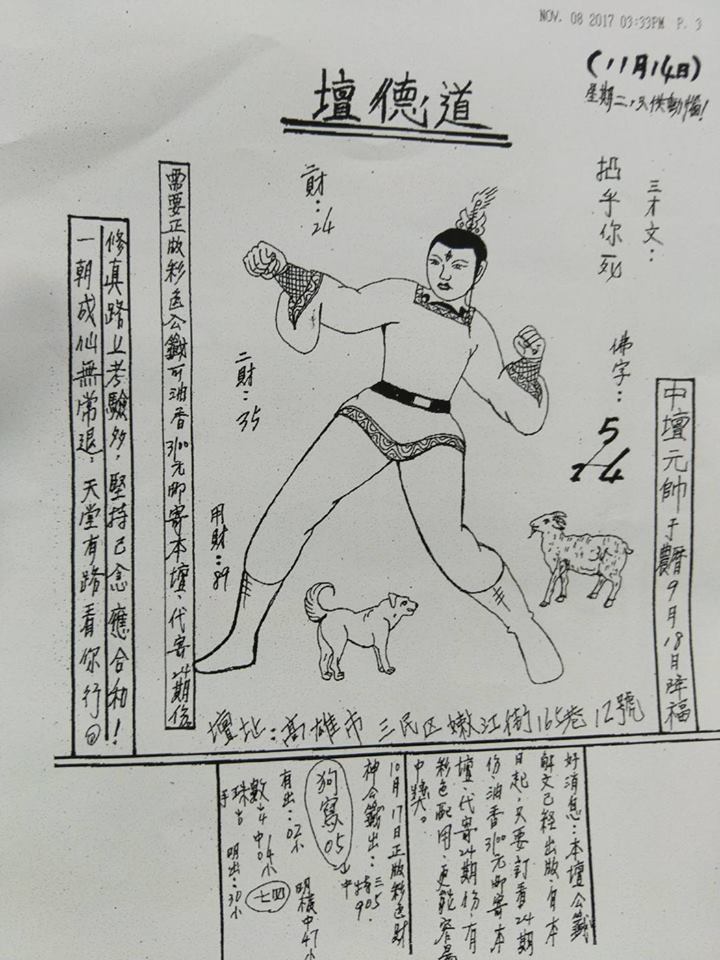 NOV. 08 2017 03:33PM P. 3
(11月14日)
道德壇
三才文：
佛字：
5
二財：24
二財：35
用財：89
中壇元帥于農曆9月18日降福
需要正版彩色公籤可油香3100元郵寄本壇、代寄24期份
修真路上考驗多，堅持己念應合和！
一朝成仙無常退，天堂有路看你行
壇址：高雄市 三民区嫩江街165巷12號
好消息：本壇公籤
解文已經出版，自本
日起，只要訂看24期
份，油香3100元郵寄本
壇、代寄24期份，有
彩色配用，更能容易
中獎。
10月17日正版彩色財
神公籤出：三五
中特905.
狗寫05
有出：02小
明
中47小
數
中04小
七四
珠出
明出：30小